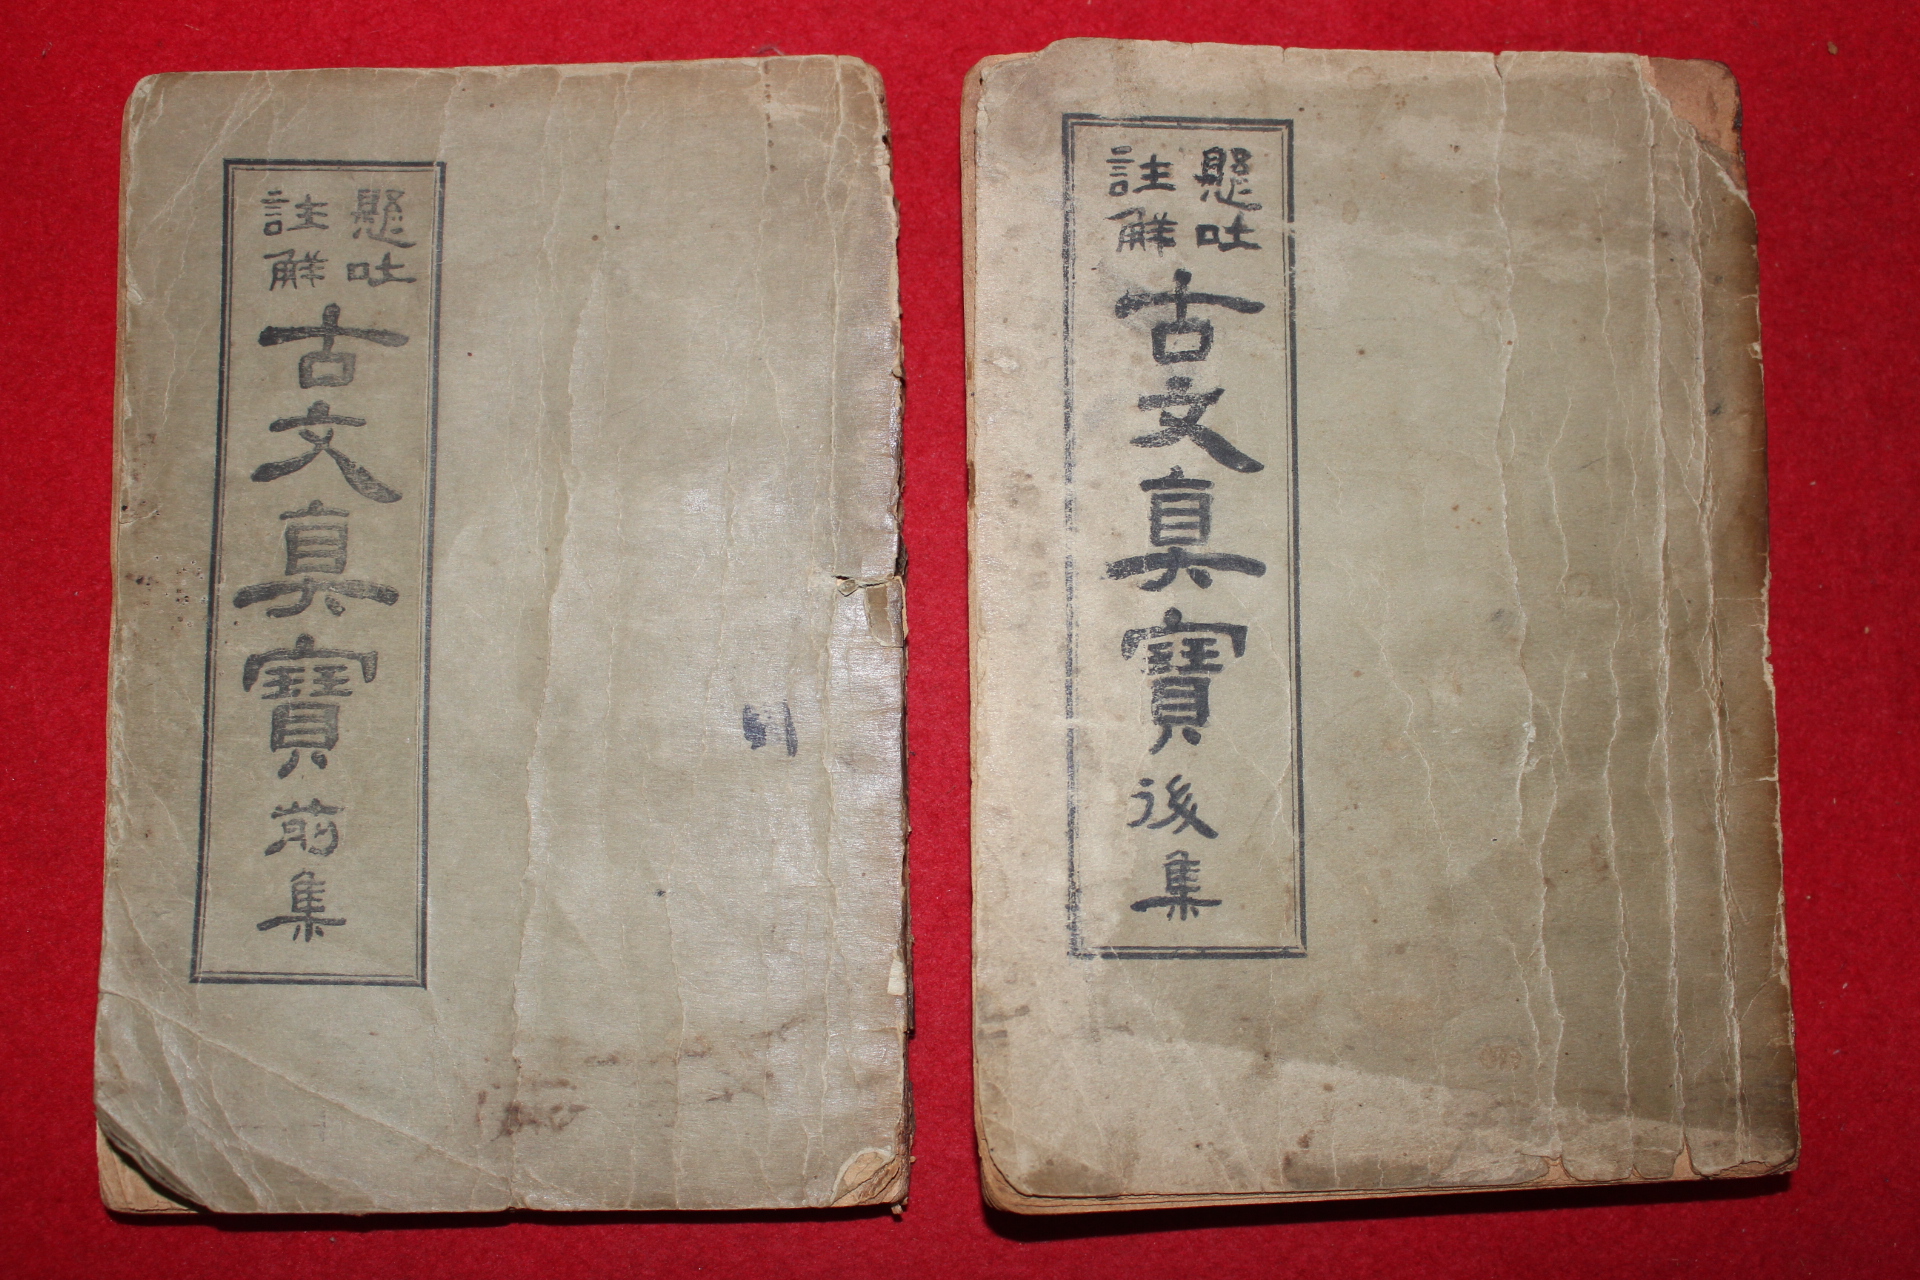 懸吐
註解
古文眞寶
前集
懸吐
註解
古文眞寶
後集